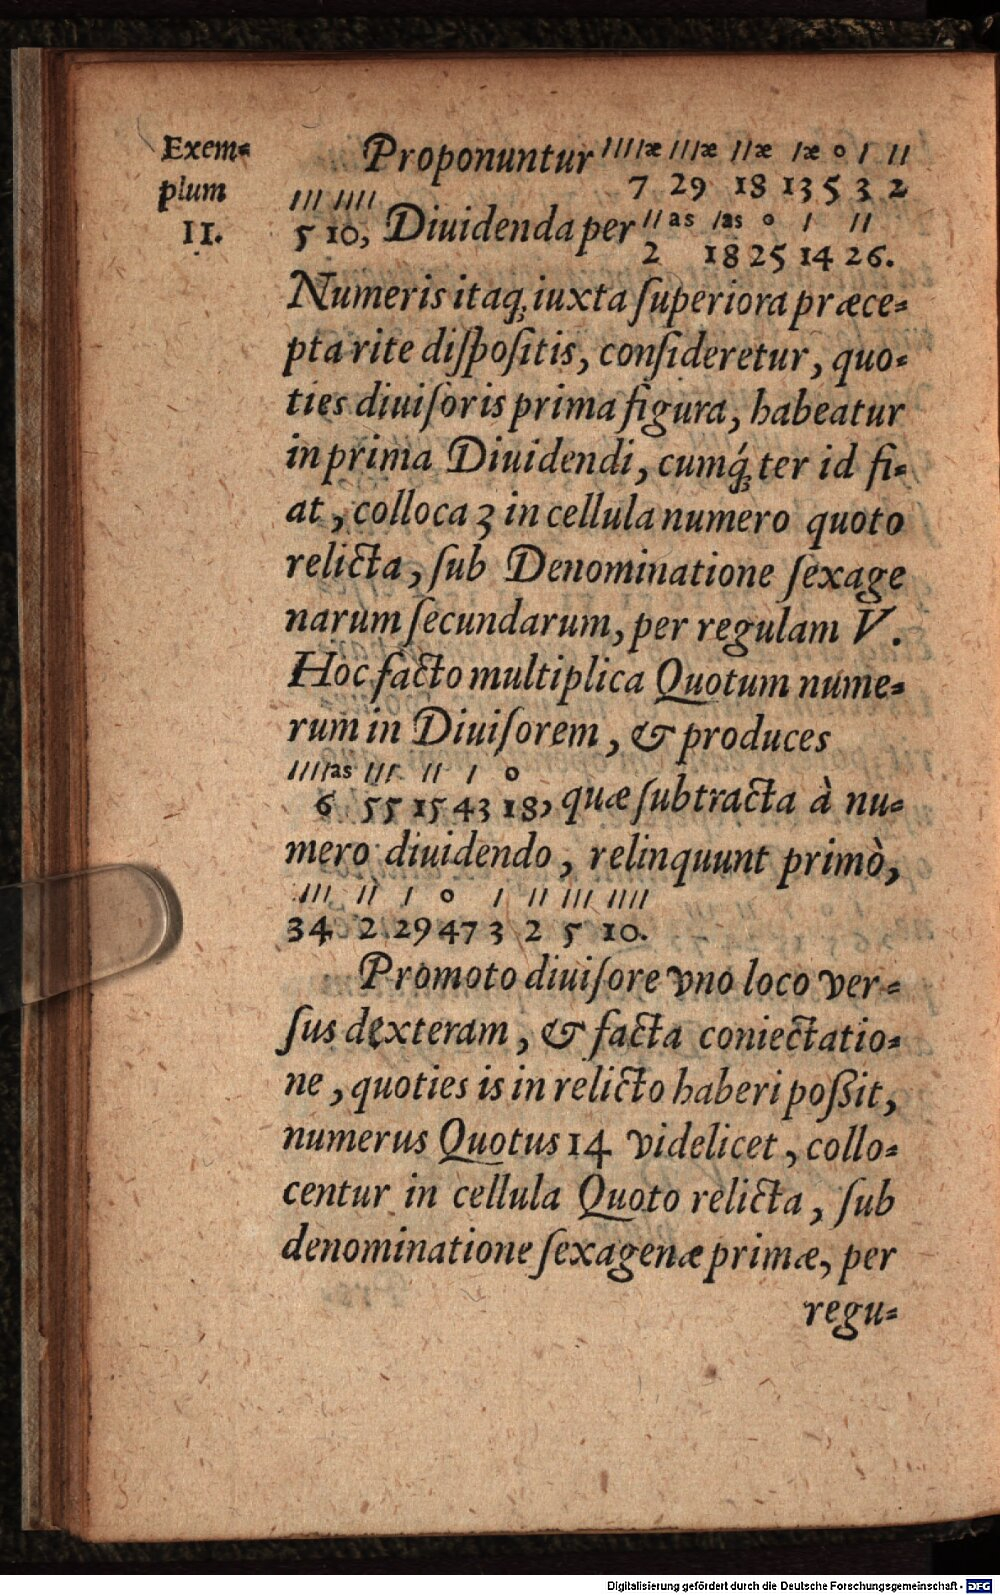 Exem⸗
plum
II.
Proponuntur ////æ ///æ //æ /æ o / //
7 29 18 13 5 3 2
/// ////
5 10, Diuidenda per //as /as o / //
2 18 25 14 26.
Numeris itaq; iuxta ſuperiora præce⸗
pta rite diſpoſitis, conſideretur, quo⸗
ties diuiſoris prima figura, habeatur
in prima Diuidendi, cumq́; ter id fi⸗
at, colloca 3 in cellula numero quoto
relicta, ſub Denominatione ſexage
narum ſecundarum, per regulam V.
Hoc facto multiplica Quotum nume⸗
rum in Diuiſorem, & produces
////as /// // / o
6 55 15 43 18, quæ ſubtracta à nu⸗
mero diuidendo, relinquunt primò,
/// // / o / // /// ////
34 2 29 47 3 2 5 10.
Promoto diuiſore vno loco ver⸗
ſus dexteram, & facta coniectatio⸗
ne, quoties is in relicto haberi poßit,
numerus Quotus 14 videlicet, collo⸗
centur in cellula Quoto relicta, ſub
denominatione ſexagenæ primæ, per
regu⸗
Digitalisierung gefördert durch die Deutsche Forschungsgemeinschaft - DFG